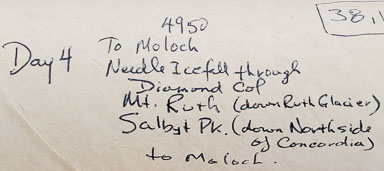 4950
38,
Day 4 To Moloch
Needle Icefall through
Diamond Col
Mt. Ruth (down Ruth Glacier)
Salbyt Pk. (down Northside
of Concordia)
to Moloch.